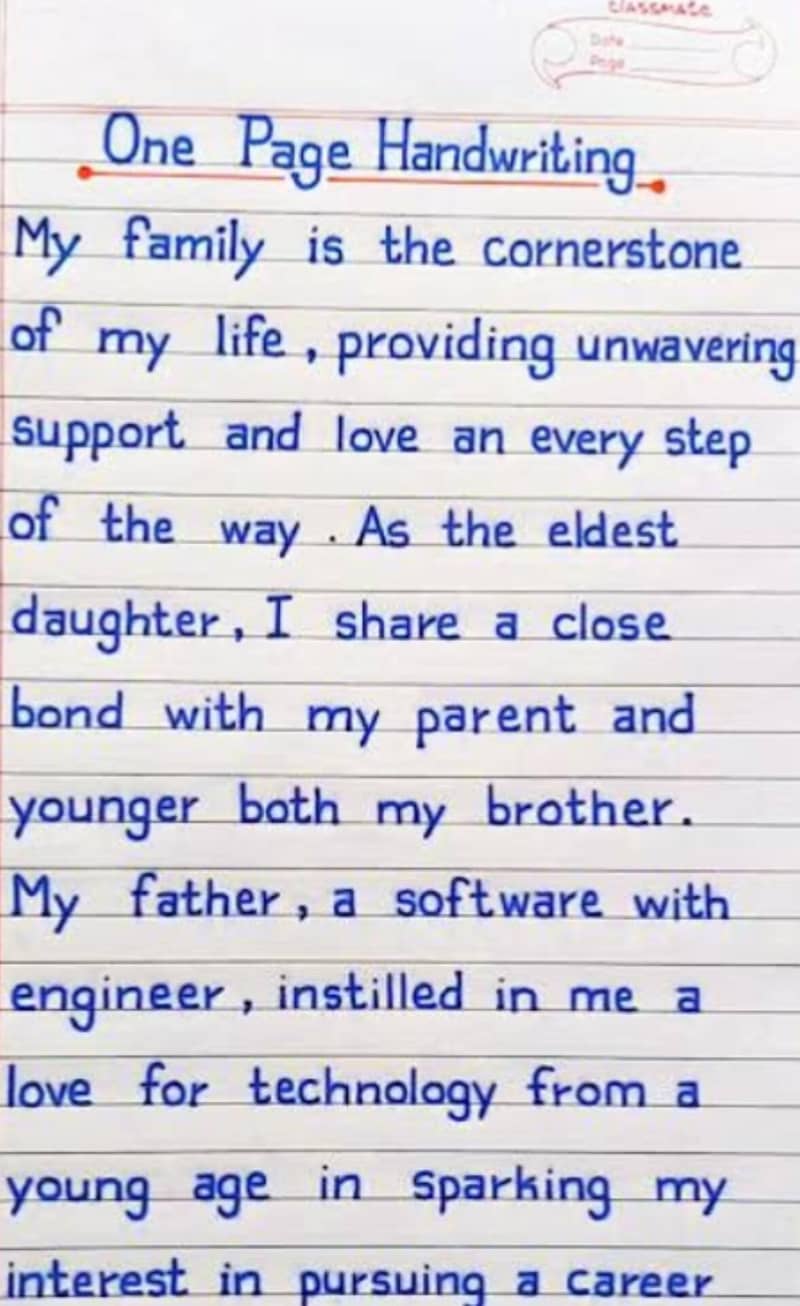 classmate
Date
Page
One Page Handwriting
My family is the cornerstone
of my life , providing unwavering
support and love an every step
of the way . As the eldest
daughter, I share a close
bond with my parent and
younger both my brother.
My father, a software with
engineer, instilled in me a
love for technology from a
young age in sparking my
interest in pursuing a career